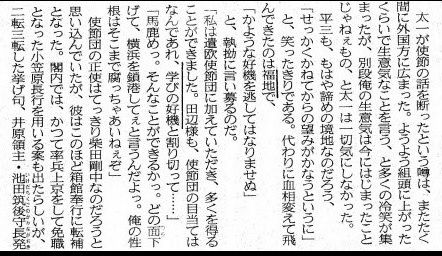 太一が使節の話を断ったという噂は、またたく
間に外国方に広まった。ようよう組頭に上がった
くらいで生意気なことを言う、と多くの冷笑が集
まったが、別段俺の生意気は今にはじまったこと
じゃねぇもの、と太一は一切気にしなかった。
平三も、もはや諦めの境地なのだろう、
「せっかくかねてからの望みがかなうというに」
と、笑ったきりである。代わりに血相変えて飛
んできたのは福地で、
「かような好機を逃してはなりませぬ」
と、執拗に言い募るのだ。
「私は遣欧使節団に加えていただき、多くを得る
ことができました。田辺様も、使節団の目当ては
なんであれ、学びの好機と割り切って……」
「馬鹿めっ。そんなことができるかっ。どの面下
げて、横浜を鎖港してぇと言うんだよっ。俺の性
根はそこまで腐っちゃあいねぇぞ」
使節団の正使はてっきり柴田剛中なのだろうと
思い込んでいたが、彼はこのほど箱館奉行に転補
となった。閣内では、かつて率兵上京をして免職
となった小笠原長行を用いる案も出たらしいが、
二転三転した挙げ句、井原領主・池田筑後守長発